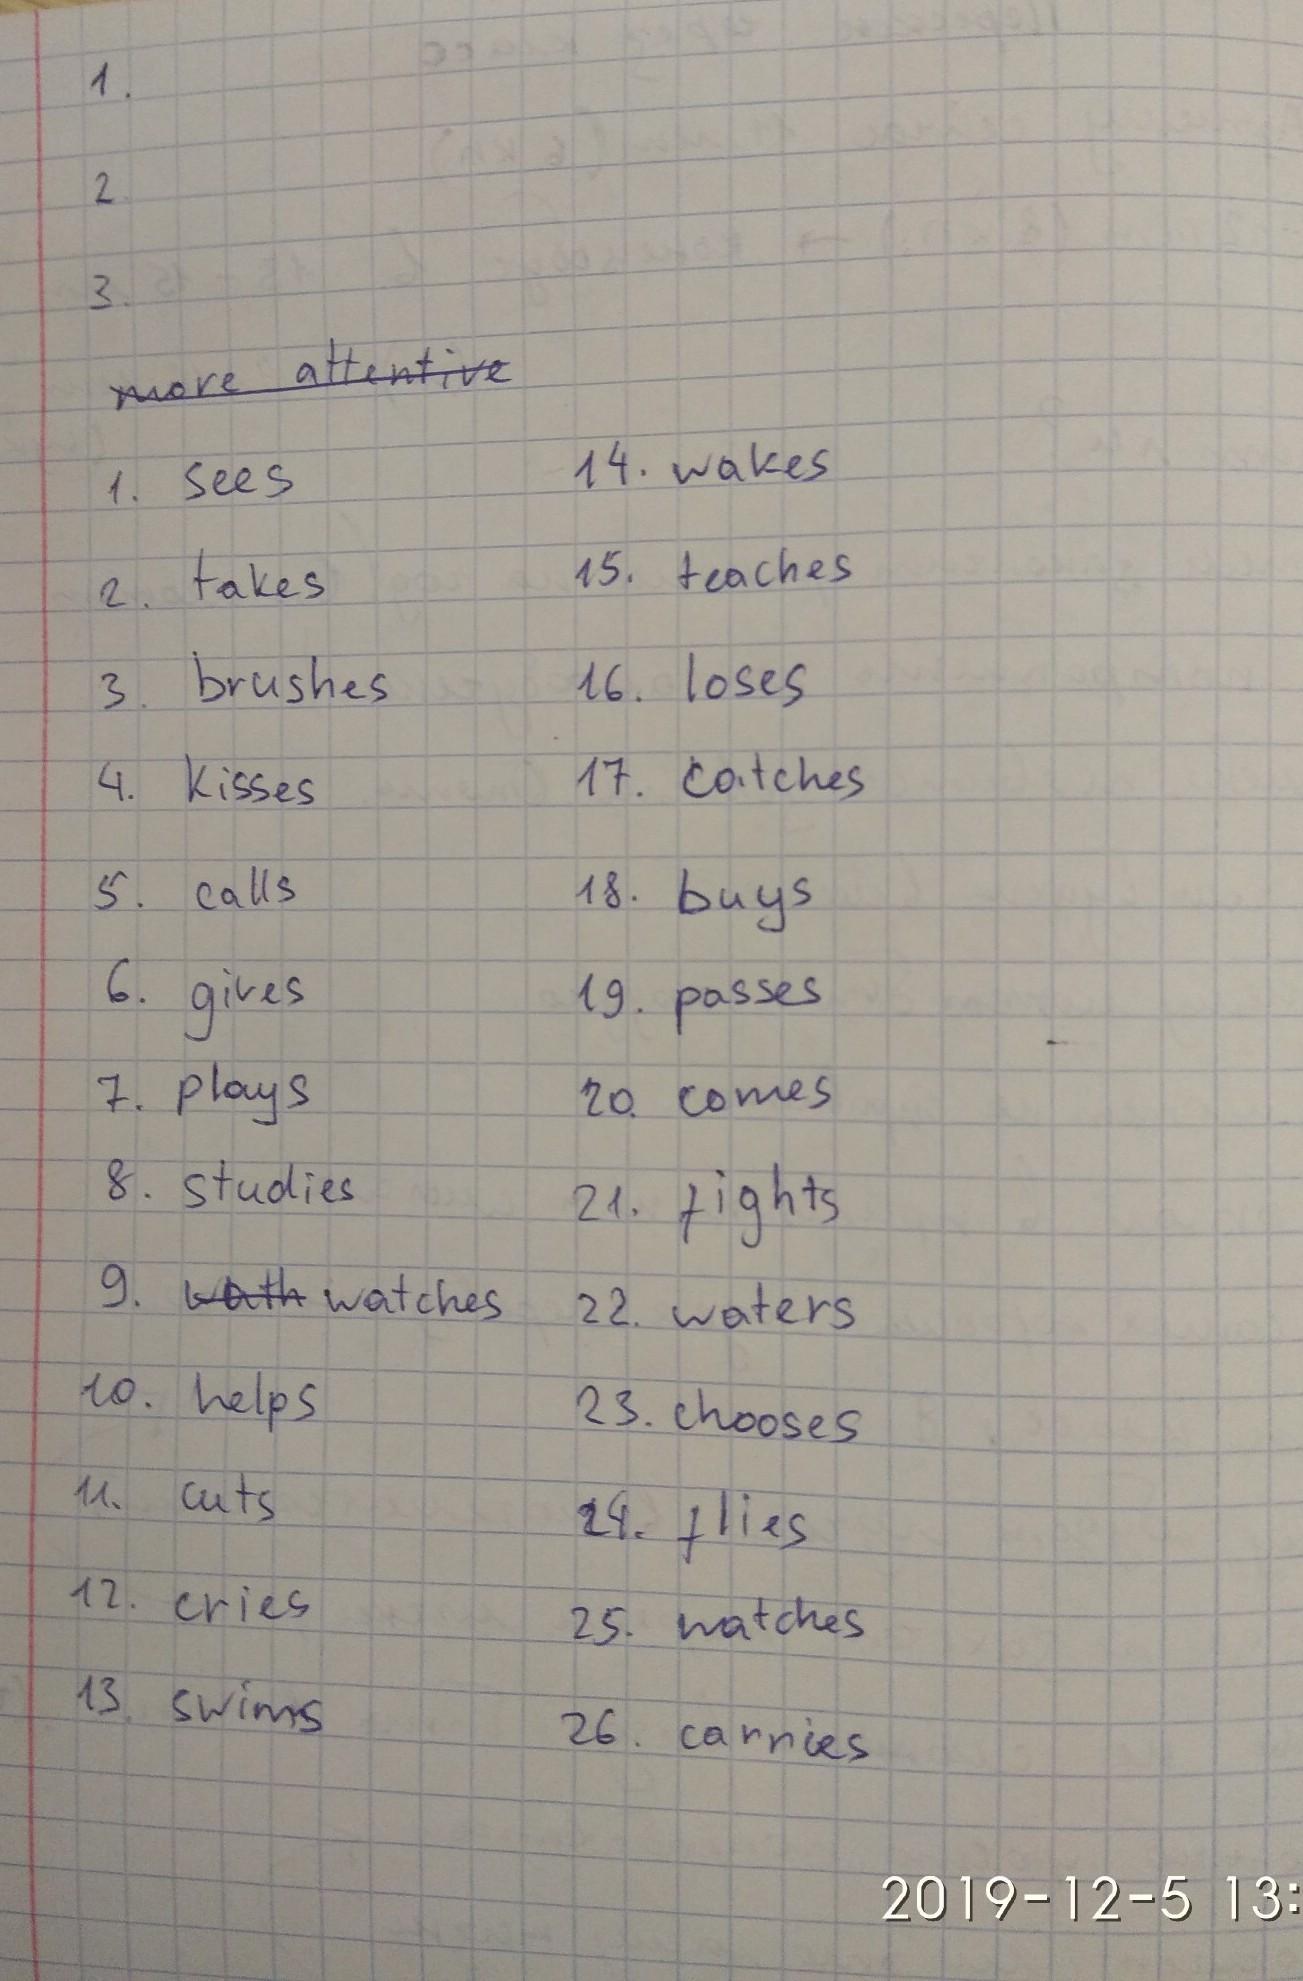 1.
2.
3.
more attentive
1. sees
2. takes
3. brushes
4. kisses
5. calls
6. gives
7. plays
8. studies
9. wath watches
10. helps
11. cuts
12. cries
13. swims
14. wakes
15. teaches
16. loses
17. catches
18. buys
19. passes
20. comes
21. fights
22. waters
23. chooses
24. flies
25. watches
26. carries
2019-12-5 13: